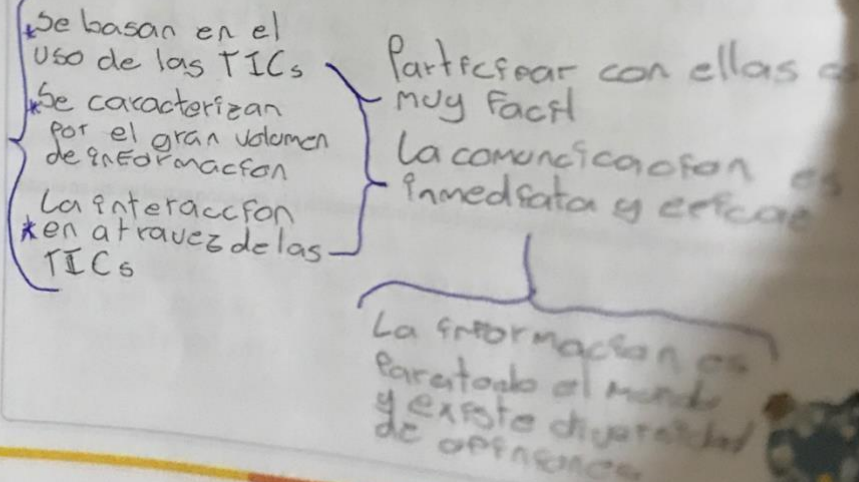 *Se basan en el
uso de las TICs
*Se caracterizan
por el gran volumen
de información
La interaccion
*en atravez de las
TICs
Participar con ellas es
muy facil
La comuncicacion es
inmediata y eficaz
La información es
para todo el mundo
y existe diversidad
de opiniones